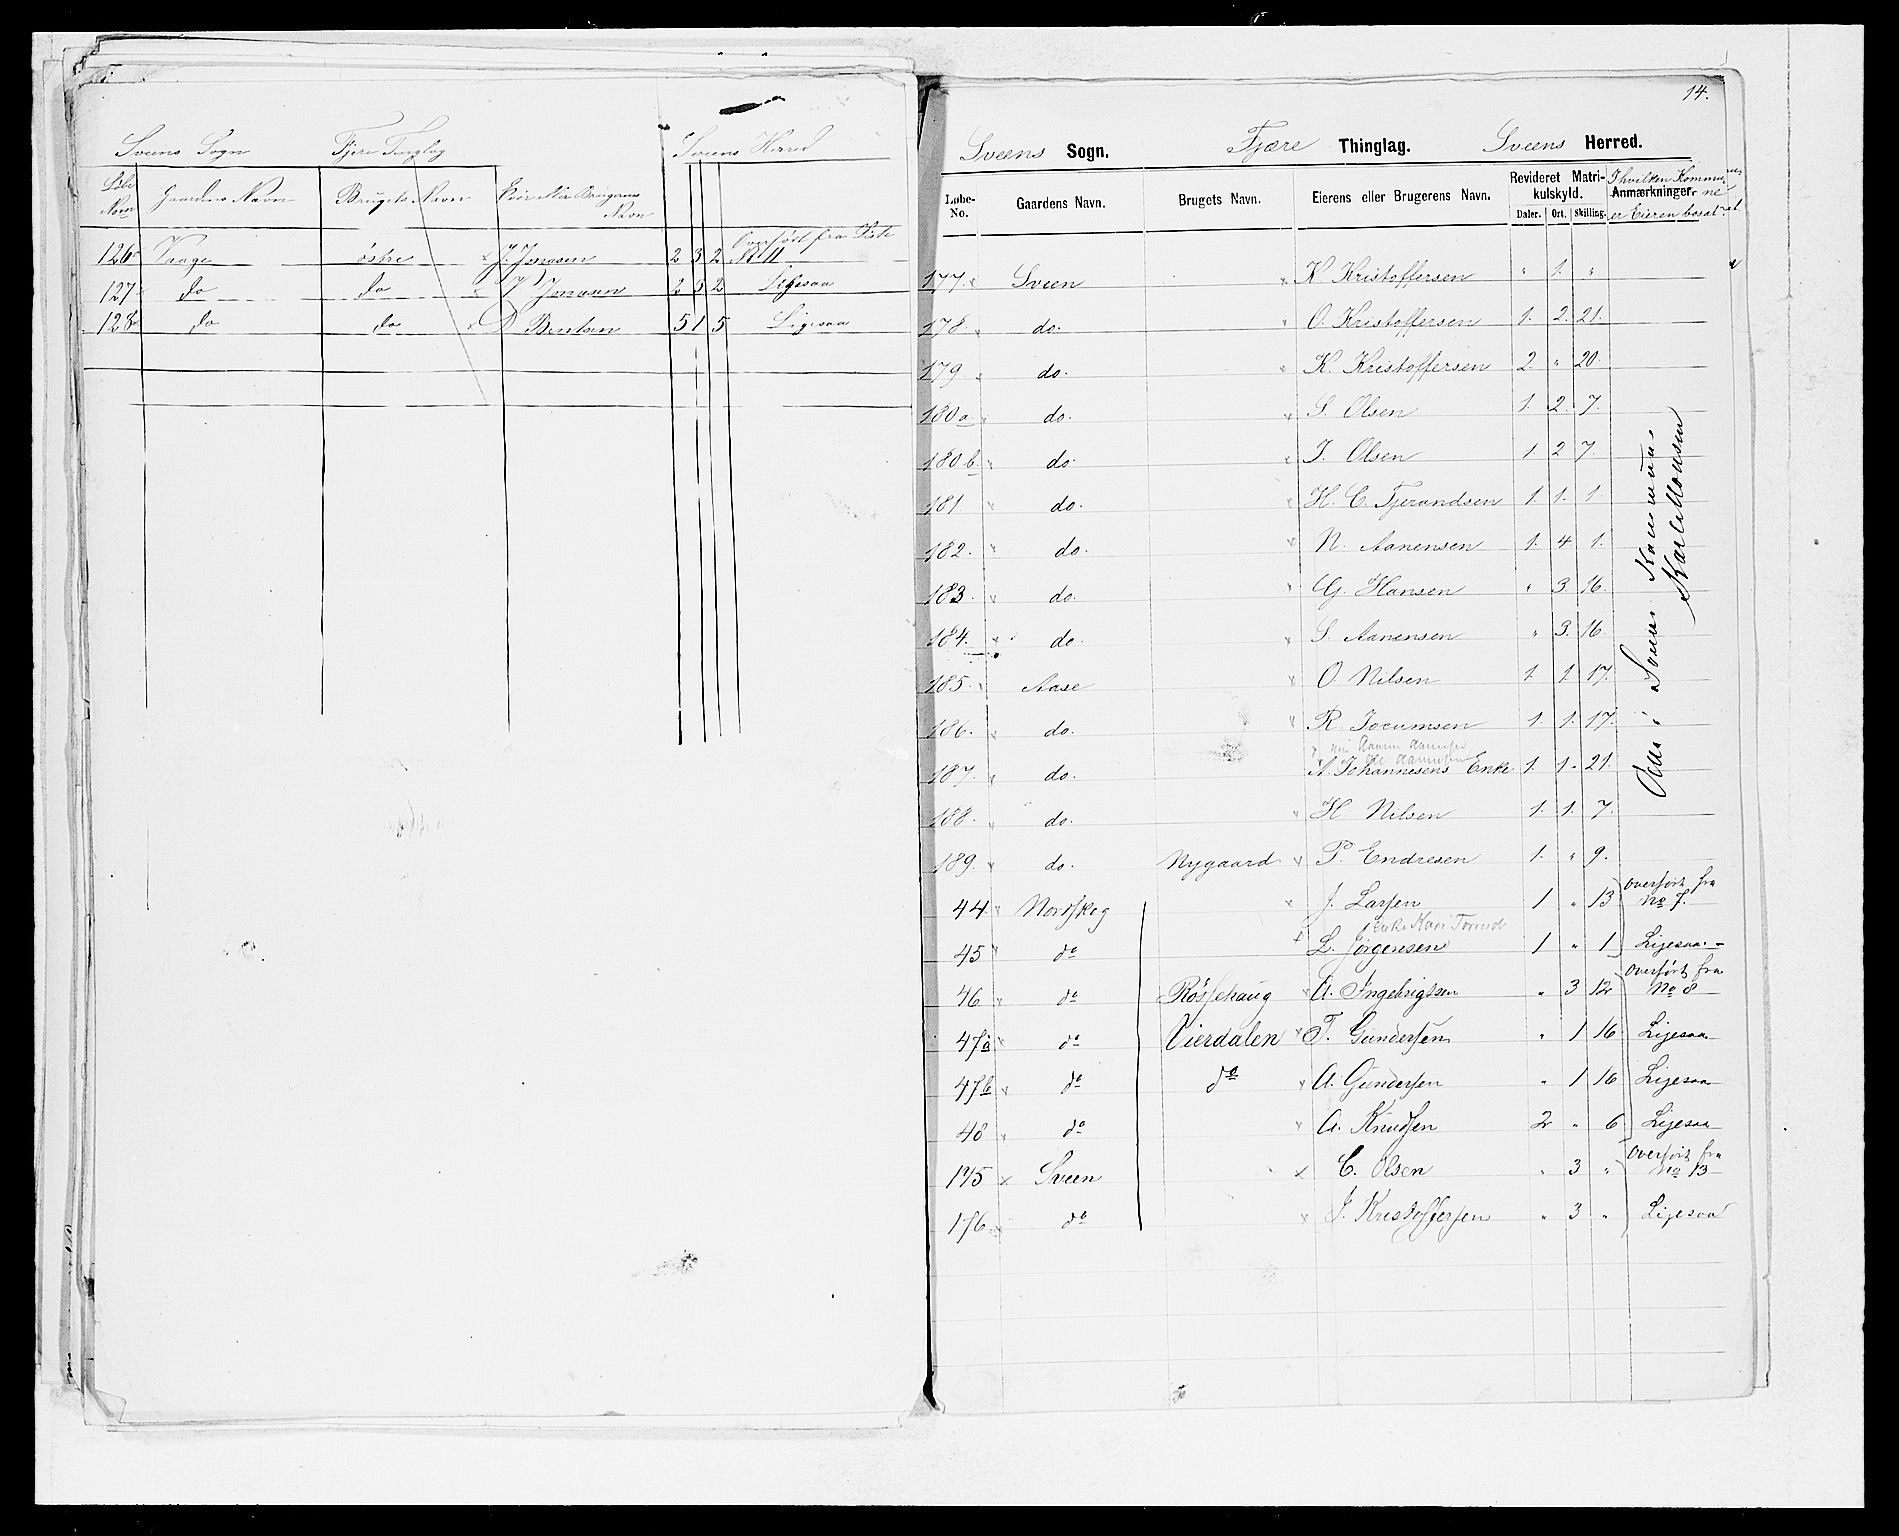 Sveens Sogn Fjere Tinglag Sveens Herred
Løbe Nom Gaardens Navn Brugets Navn Eier eller Brugerens Navn
126 Vaage østre J. Jonasen 2 3 2 Overført fra Liste No 11
127 do do Jonasen 2 3 2 Ligesaa
128 do do Bentsen 5 1 5 Ligesaa
14.
Sveens Sogn. Fjære Thinglag. Sveens Herred.
Løbe-No. Gaardens Navn. Brugets Navn. Eierens eller Brugerens Navn. Revideret Matrikulskyld. Daler. Ort. Skilling. Anmærkninger. I hvilken Kommune er Eieren bosat
177. Sveen K. Kristoffersen " 1. "
178. do. O. Kristoffersen 1. 2. 21.
179 do. K. Kristoffersen 2. " 20
180a do. S. Olsen 1. 2. 7.
180b. do. J. Olsen 1. 2 7.
181. do. H. C. Tjerandsen 1. 1. 1.
182. do. N. Aanensen 1. 4. 1.
183. do. G. Hansen " 3. 16.
184. do. S. Aanensen " 3. 16.
185. Aase O. Nilsen 1. 1. 17.
186. do. R. Jocumsen 1. 1. 17.
187. do. A. Johannesens Enke 1. 1. 21.
188. do. H. Nilsen 1. 1. 7.
189. do. Nygaard. P. Endresen 1. " 9.
Alle i Sveens Kommune
44 Nordskog J. Larsen 1 " 13 overført fra No 7.
Enke Kari
45 do L. Jørgensen 1 " 1 Ligesaa
46 do Røssehaug A. Ingebrigtsen " 3 12 overført fra No 8
47a do Vierdalen T. Gundersen " 1 16 Ligesaa
47b do do A. Gundersen " 1 16 Ligesaa
48 do A. Knudsen 2 " 6 Ligesaa
175 Sveen C. Olsen " 3 " overført fra No 13
176 do J. Kristoffersen " 3 " Ligesaa